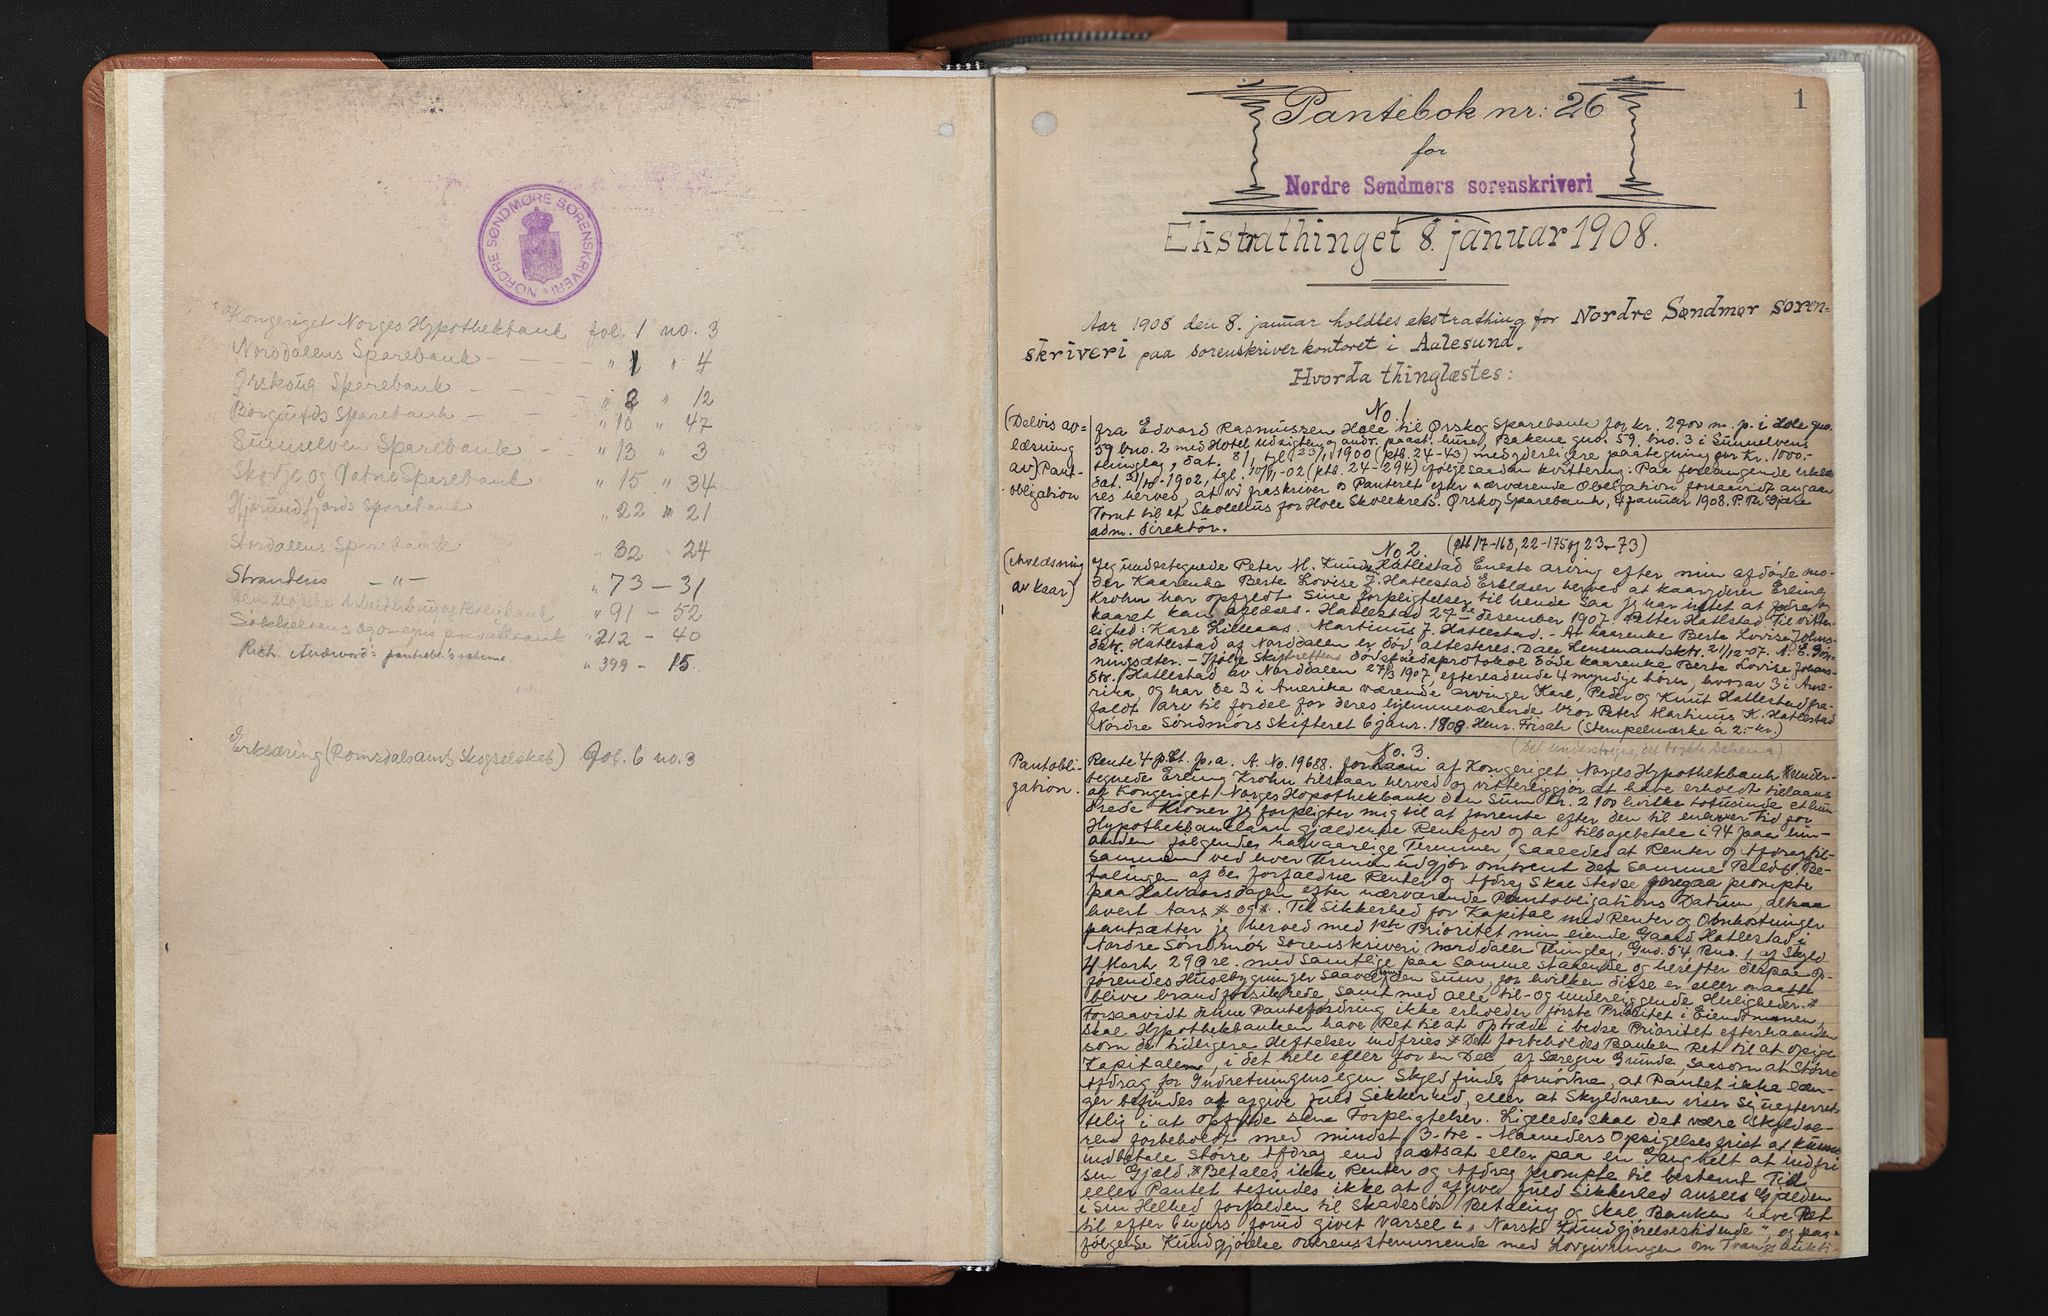 NORDRE SØNDMØRE SORENSKRIVERI
Kongeriget Norges Hypothekbank fol. 1 no. 3
Norddalens Sparebank - - - " 1 " 4
Ørskoug Sparebank - - - " 2 " 12
Borgunds Sparebank - - " 10 " 47
Sunnelven Sparebank - " 13 " 3
Skodje og Vatne Sparebank " 15 " 34
Hjørundfjords Sparebank " 22 " 21
Stordalens Sparebank " 32 " 24
Strandens -"- " 73 - 31
Den norske Arbeiderbrug og Boligbank " 91 - 52
Søkkelvens og omegns privatbank " 212 - 40
pantobl.s schema " 399 - 15
Erklæring (Romsdals amts Skogselskab) fol. 6 no. 3
1
Pantebok nr: 26
for
Nordre Søndmørs sorenskriveri
Ekstrathinget 8. januar 1908.
Aar 1908 den 8. januar holdtes ekstrathing for Nordre Søndmør soren-
skriveri paa sorenskriverkontoret i Aalesund.
Hvorda thinglæstes:
No. 1
(Delvis av-
læsning
av) Pant-
obligation
fra Edvard Rasmussen Hole til Ørskog Sparebank for kr. 2900 m. p. i Hole gno.
59 bno. 2 med Hotel Udsigten og andr. paast. huse, Bakene gno. 59. bno. 3 i Sunnelvens
thinglag, dat. 8/1, tgl. 23/1 1900 (ptb. 24-43) med yderligere paategning for Kr. 1000.-
dat. 1902, tgl. (ptb. 24-294) ifølge saadan kvittering: Paa forlangende erklæ-
res herved, at vi fraskriver os Panteret efter nærværende Obligation forsaavidt angaar
Tomt til et Skolehus for Hole Skolekreds. Ørskog Sparebank, 4 januar 1908. P. Th. Gjære
adm. direktør.
No 2. (ptb 17-168, 22-175 og 23-73)
(Avlæsning
av kaar)
Jeg undertegnede Peter M. Knudsen Hatlestad Eneste arving efter min afdøde mo-
der Kaarenke Berte Lovise J. Hatlestad Erklærer herved at kaaryder Erling
Krohn har opfyldt Sine forpligtelser til hende saa jeg har intet at fordre og
kaaret kan aflæses. Hatlestad 27de desember 1907. Petter Hatlestad. Til vitter-
lighed: Karl Lilleaas. Martinus J. Hatlestad. - At kaarenke Berte Lovise Johns-
datr. Hatlestad af Norddalen er død, attesteres. Dale Lensmandsktr. 21/12-07. A. E. Døn-
ningsæter. - Ifølge Skifterettens dødsfaldsprotokol døde kaarenke Berte Lovise Johans-
dtr. Hatlestad av Norddalen 27/3 1907, efterladende 4 myndige børn, hvorav 3 i Ame-
rika, og har de 3 i Amerika værende arvinger Karl, Peder og Knut Hatlestad fra-
faldt arv til fordel for deres hjemmeværende bror Peter Martinus K. Hatlestad
Nordre Søndmørs skifteret 6 janr. 1908. Henr. Frisak (Stempelmærke a 2.- kr.)
No. 3. (Det understregne, det trykte schema)
Pantobli-
gation.
Rente 4 pCt. p. a. A. No. 19688. for Laan af Kongeriget Norges Hypothekbank Under-
tegnede Erling Krohn tilstaar herved og vitterliggjør at have erholdt tillaans
af Kongeriget Norges Hypothekbank den Sum Kr. 2100 hvilke totusinde et hun-
drede Kroner jeg forpligter mig til at forrente efter den til enhver tid for
Hypothekbanklaan gjældende Rentefod og at tilbagebetale i 94 paa hin-
anden følgende halvaarlige Terminer, saaledes at Renter og Afdrag til-
sammen ved hver Termin udgjør omtrent det samme Beløb. Be-
talingen af de forfaldne Renter og Afdrag Skal stedse foregaa prompte
paa Halvaarsdagen efter nærværende Pantobligations Datum, altsaa
hvert Aars * og *. Til Sikkerhed for Kapital med Renter og Omkostninger
pantsætter jeg herved med 1ste Prioritet min eiende Gaard Hatlestad i
Nordre Søndmør Sorenskriveri Norddalen Thinglag, Gno. 54 Bno. 1 af Skyld
4 Mark 29 Øre. med Samtlige paa Samme staaende og herefter derpaa op-
førendes Husebygninger saavelsom den Sum, for hvilken disse er eller maatte
blive brandforsikrede, Samt med alle til- og underliggende Herligheder. *
Forsaavidt denne Pantefordring ikke erholder første Prioritet i Eiendommen,
skal Hypothekbanken have Ret til at optræde i bedre Prioritet efterhaanden
som de tidligere Heftelser indfries * Det forbeholdes Banken Ret til at opsige
Kapitalen, i det hele eller for en Del, af særegne Grunde, saasom at Større
Afdrag for Indretningens egen Skyld findes fornødne, at Pantet ikke læn-
ger befindes at afgive fuld Sikkerhed, eller at Skyldneren viser sig uefterret-
telig i at opfylde sine Forpligtelser. Ligeledes skal det være Skyldne-
ren forbeholdt med mindst 3-tre- Maaneders Opsigelsesfrist at kunne
indbetale Større Afdrag end fastsat eller paa en Gang helt at indfri
sin Gjæld. * Betales ikke Renter og Afdrag prompte til bestemt Tid
eller Pantet befindes ikke at afgive fuld Sikkerhed ansees Gjælden
i Sin Helhed forfalden til Skadesløs Betaling og Skal Banken have Ret
til efter 6 ugers forud givet Varsel i "Norsk Kundgjørelsestidende", og paa-
følgende Kundgjørelse overensstemmende med Lovgivningen om Tvangsaukti-